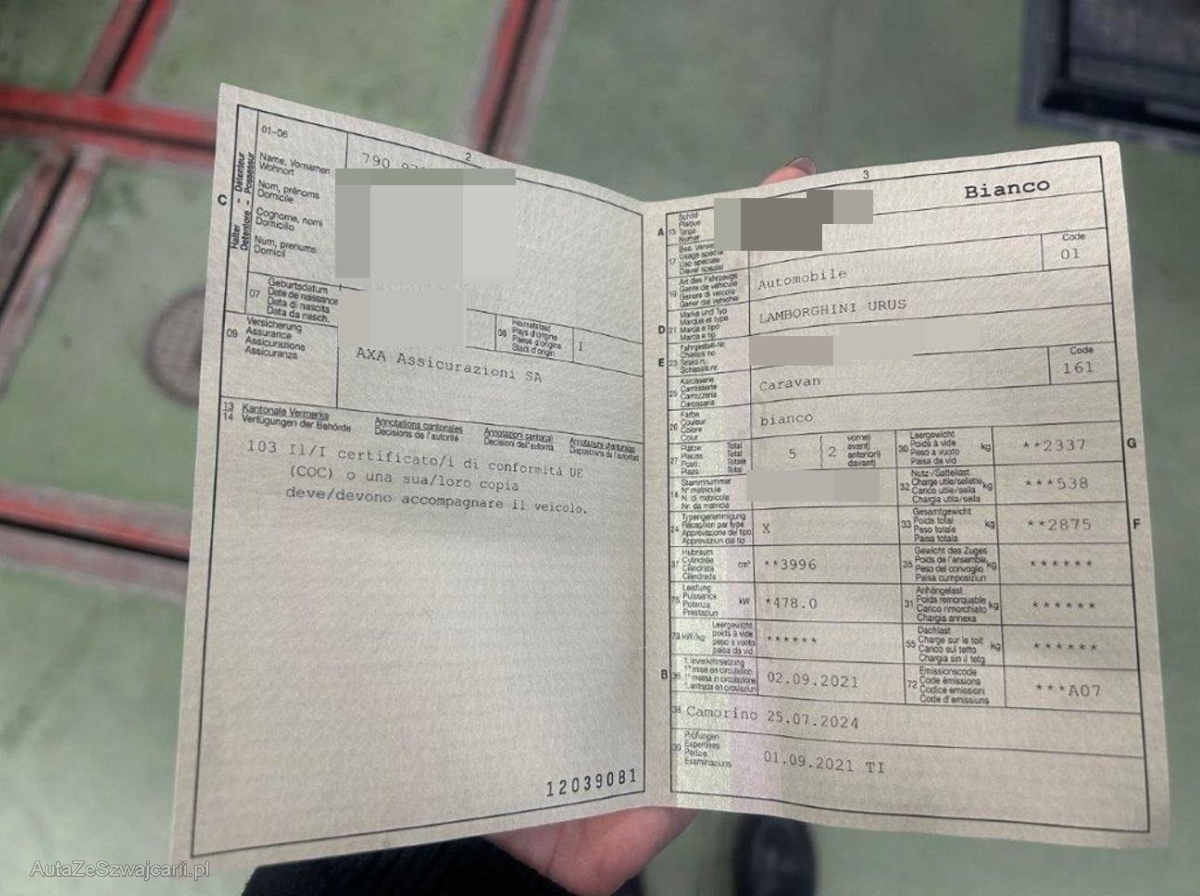 01-06
790
2
C
Halter - Détenteur
Detentore - Possessur
Name, Vornamen
Wohnort
Nom, prénoms
Domicile
Cognome, nomi
Domicilio
Num, prenums
Domicil
07
Geburtsdatum
Date de naissance
Data di nascita
Data da nasch.
08
Heimatstaat
Pays d'origine
Paese d'origine
Stadi d'origin
I
09
Versicherung
Assurance
Assicurazione
Assicuranza
AXA Assicurazioni SA
13 Kantonale Vermerke
14 Verfügungen der Behörde
Annotations cantonales
Décisions de l'autorité
Annotazioni cantonali
Decisioni dell'autorità
Annotaziuns chantunalas
Disposiziuns da l'autoritad
103 Il/I certificato/i di conformità UE
(COC) o una sua/loro copia
deve/devono accompagnare il veicolo.
12039081
3
Bianco
A 15
Schild
Plaque
Targa
Numer
17
Code
01
19
Art des Fahrzeuges
Genre de véhicule
Genere di veicolo
Gener dal vehichel
Automobile
D 21
Marke und Typ
Marque et type
Marca e tipo
Marca e tip
LAMBORGHINI URUS
E 23
Fahrgestell-Nr.
Châssis no
Telaio n.
Schassis nr.
25
Karosserie
Carrosserie
Carrozzeria
Carossaria
Caravan
Code
161
26
Farbe
Couleur
Colore
Colur
bianco
27
Plätze Total
Places Total
Posti Totale
Plazs Total
5
2
vorne)
avant)
anteriori)
davant)
30
Leergewicht
Poids à vide
Peso a vuoto
Paisa da vid
kg
**2337
G
18
Stammnummer
N° matricule
N. di matricola
Nr. da matricla
32
Nutz-/Sattellast
Charge utile/sellette
Carico utile/sella
Chargia utila/sella
kg
***538
24
Typengenehmigung
Réception par type
Approvazione del tipo
Approvaziun dal tip
X
33
Gesamtgewicht
Poids total
Peso totale
Paisa totala
kg
**2875
F
37
Hubraum
Cylindrée
Cilindrata
Cilindrada
cm³
**3996
35
Gewicht des Zuges
Poids de l'ensemble
Peso del convoglio
Paisa cumposiziun
kg
******
76
Leistung
Puissance
Potenza
Prestaziun
kW
*478.0
31
Anhängelast
Poids remorquable
Carico rimorchiato
Chargia annexa
kg
******
78 kW/kg
Leergewicht
poids à vide
peso a vuoto
paisa da vid
******
55
Dachlast
Charge sur le toit
Carico sul tetto
Chargia sin il tetg
kg
******
B 36
1. Inverkehrsetzung
1re mise en circulation
1a messa in circolazione
1. entrada en circulaziun
02.09.2021
72
Emissionscode
Code émissions
Codice emissioni
Code d'emissiuns
***A07
38
Camorino 25.07.2024
39
Prüfungen
Expertises
Perizie
Examinaziuns
01.09.2021 TI
AutaZeSzwajcarii.pl